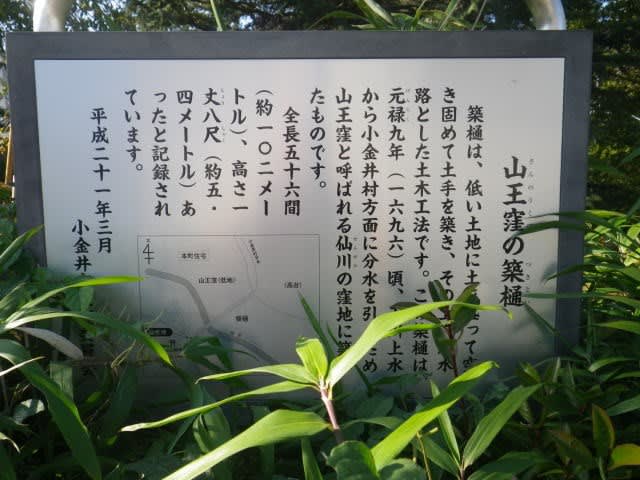 山王窪の築樋
築樋は、低い土地に土
って突
き固めて土手を築き、その
水
路とした土木工法です。こ
築樋は
元禄九年（一六九六）頃、
上水
から小金井村方面に分水を引
め
山王窪と呼ばれる仙川の窪地に築
たものです。
全長五十六間
（約一〇二メー
トル）、高さ一
丈八尺（約五・
四メートル）あ
ったと記録され
ています。
平成二十一年三月
小金井
本町住宅
山王窪(低地)
(高台)
築樋